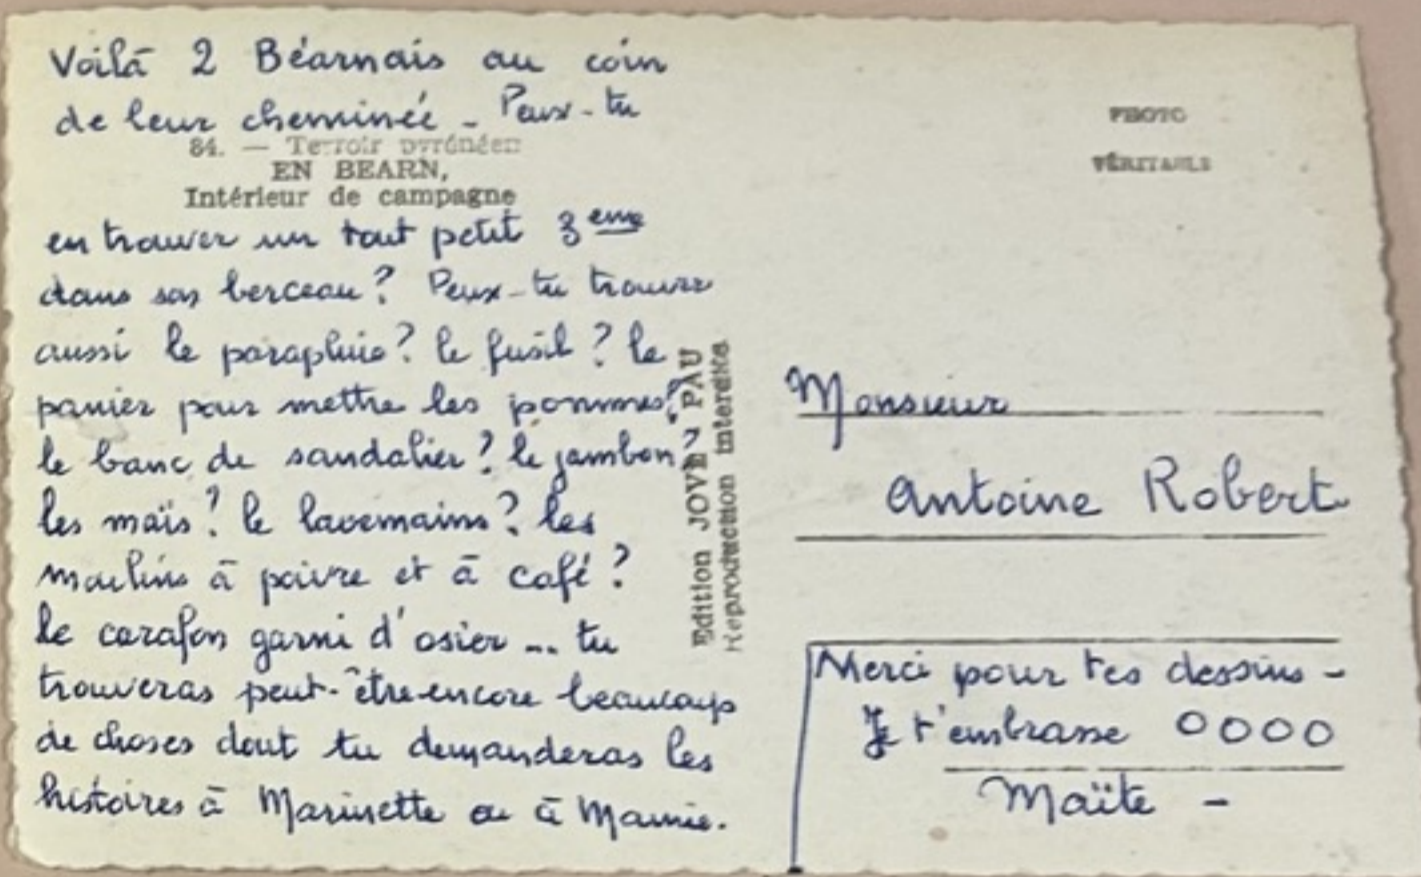 Voilà 2 Béarnais au coin
de leur cheminée - Peux-tu
84. — Terroir pyrénéen
EN BEARN,
Intérieur de campagne
en trouver un tout petit 3eme
dans son berceau? Peux-tu trouver
aussi le parapluie? le fusil? le
panier pour mettre les pommes?
le banc de sandalier? le jambon?
les maïs? le lavemains? les
moulins à poivre et à café?
le carafon garni d'osier ... tu
trouveras peut-être encore beaucoup
de choses dont tu demanderas les
histoires à Marinette ou à Mamie.
Edition JOVE, PAU
Reproduction interdite
PHOTO
VÉRITABLE
Monsieur
Antoine Robert
Merci pour tes dessins -
Je t'embrasse OOOO
Maïte -